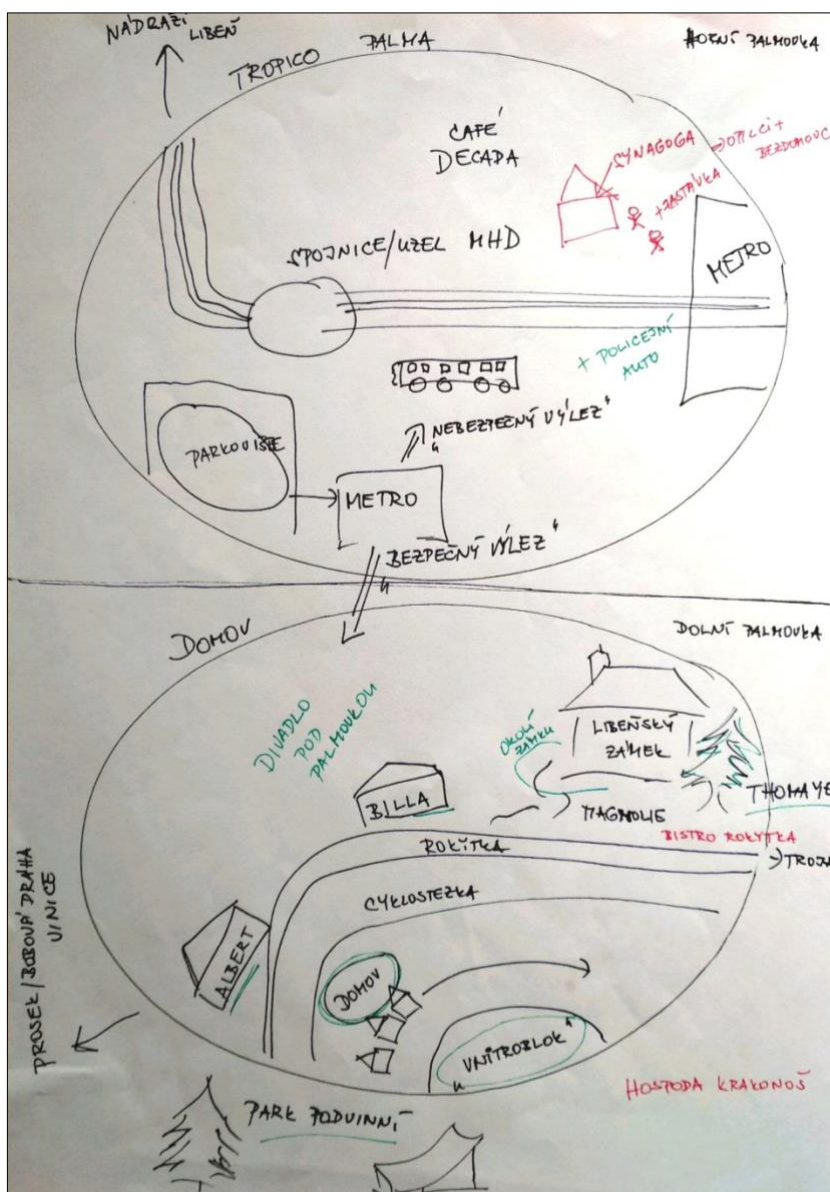 NÁDRAŽÍ
LIBEŇ
TROPICO
PALMA
HORNÍ PALMOVKA
CAFÉ
DECADA
SYNAGOGA
→ OPILCI +
BEZDOMOVCI
+ ZASTÁVKA
METRO
SPOJNICE/UZEL MHD
+ POLICEJNÍ
AUTO
PARKOVIŠE
METRO
„NEBEZPEČNÝ VÝLEZ“
„BEZPEČNÝ VÝLEZ“
DOMOV
DOLNÍ PALMOVKA
DIVADLO
POD
PALMOVKOU
OKOLÍ
ZÁMKU
LIBEŇSKÝ
ZÁMEK
THOMAYE
BILLA
MAGNOLIE
BISTRO ROKYTKA
ROKÍTKA
TROJA
CYKLOSTEZKA
ALBERT
DOMOV
„VNITROBLOK“
PROSEK/BOBOVÁ DRÁHA
VINICE
HOSPODA KRAKONOŠ
PARK PODVINNÍ